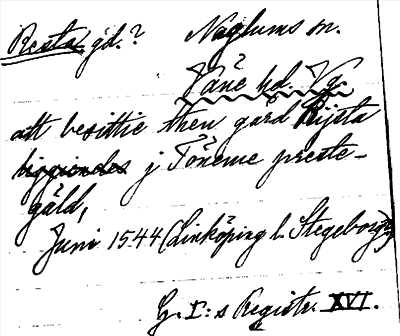 Resta gd.? Naglums sn.
Väne hd. Vg.
att besittie then gård Rijsta
liggiendes j Töneme preste-
gäld,
Juni 1544 (Linköping l. Stegeborg)
G. I:s Registr. XVI.